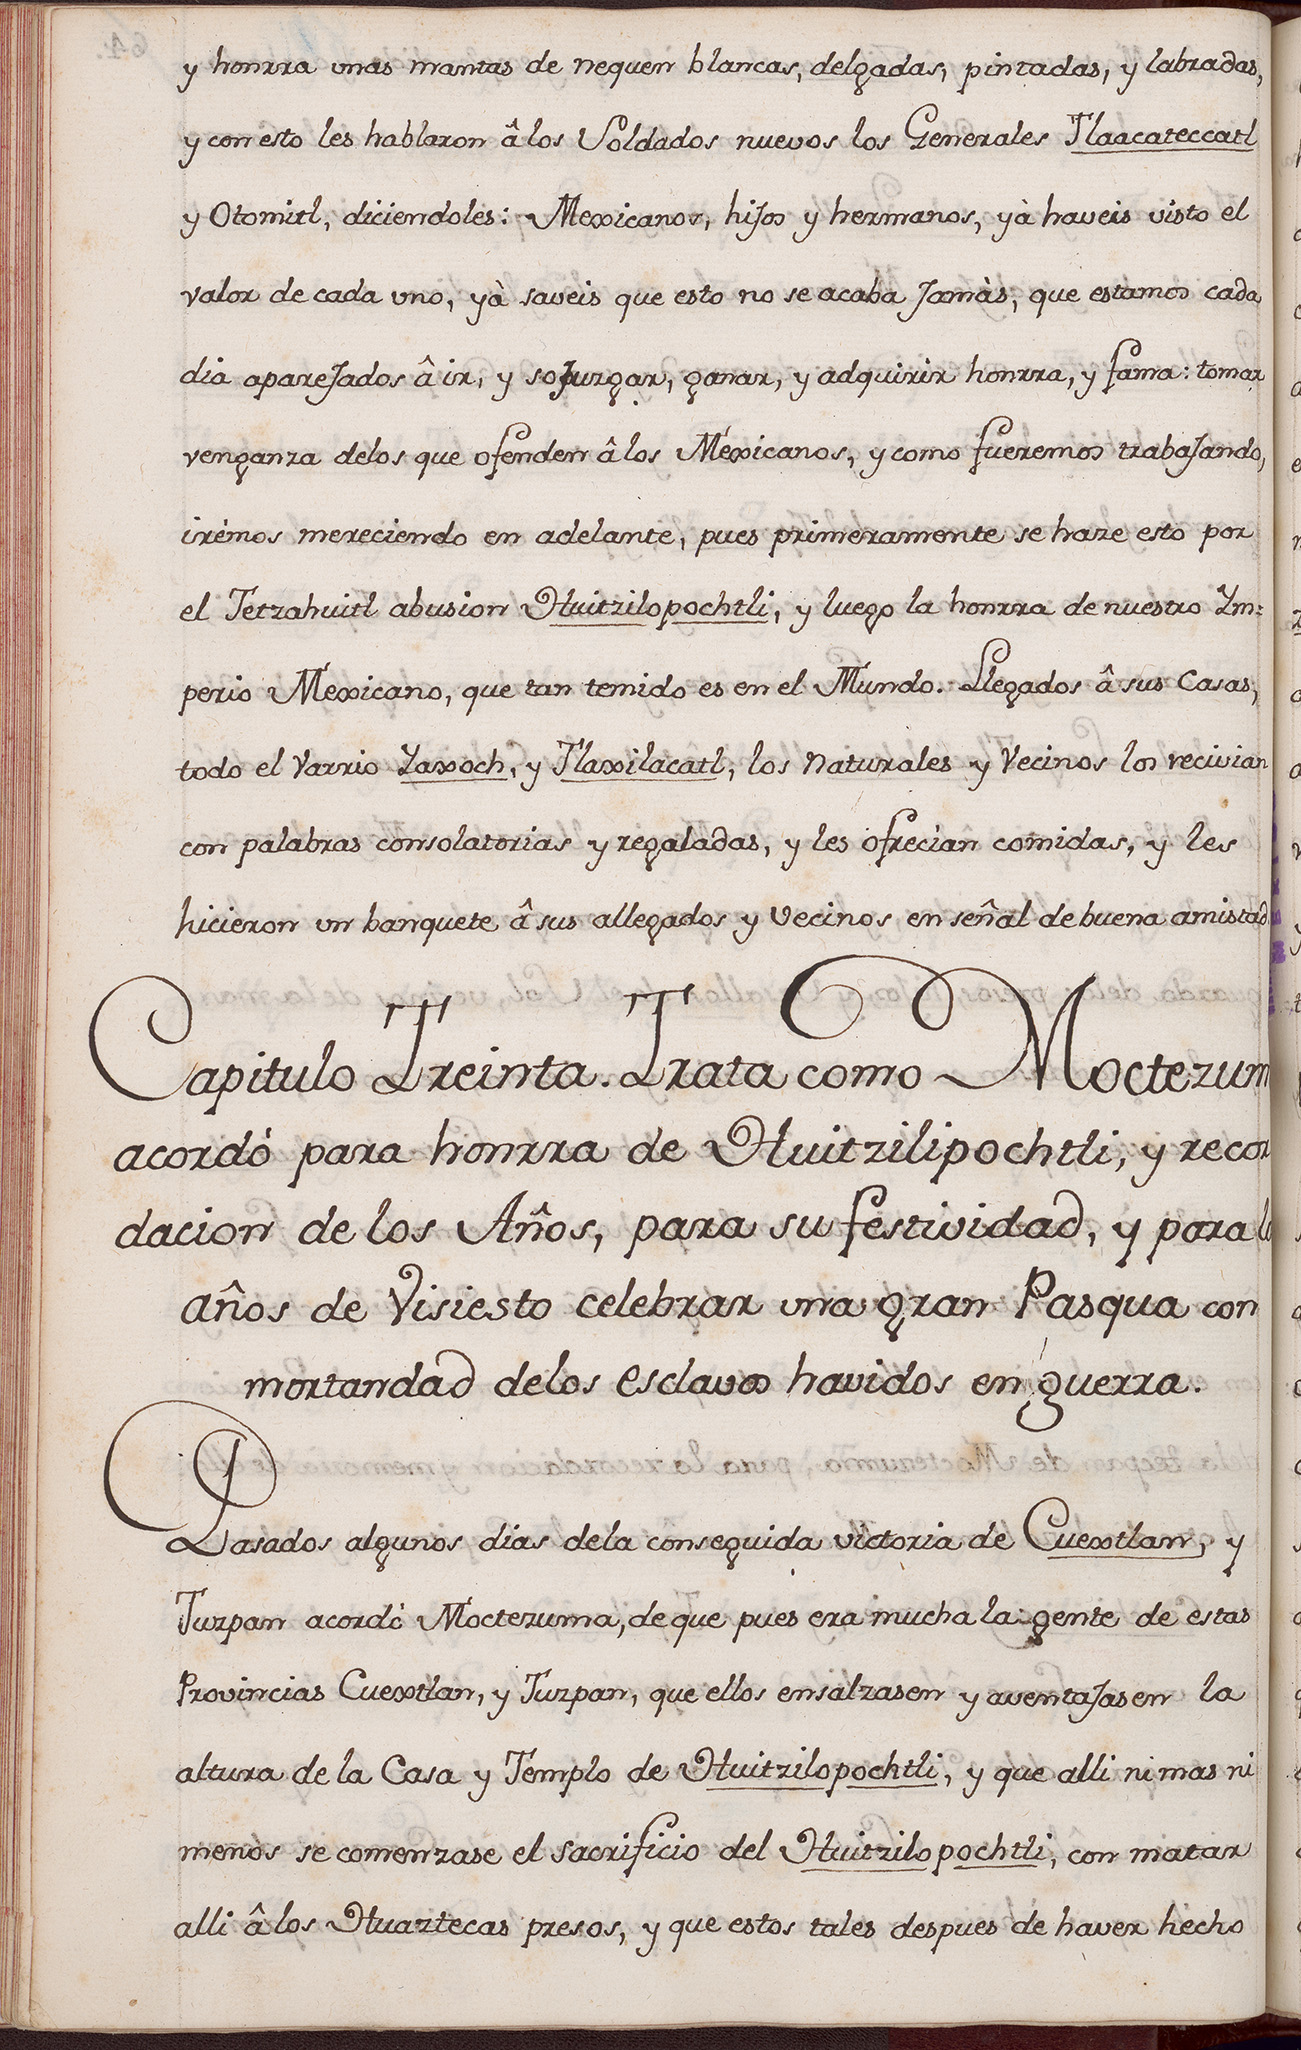 y honrra unas mantas de nequen blancas, delgadas, pintadas, y labradas,
y con esto les hablaron â los Soldados nuevos los Generales Tlaacateccatl
y Otomitl, diciendoles: Mexicanos, hijos y hermanos, yà haveis visto el
valor de cada uno, yà saveis que esto no se acaba Jamàs, que estamos cada
dia apareJados â ir, y soJuzgar, ganar, y adquirir honrra, y fama: tomar
venganza delos que ofenden â los Mexicanos, y como fueremos trabaJando,
irémos mereciendo en adelante, pues primeramente se haze esto por
el Tetzahuitl abusion Huitzilopochtli, y luego la honrra de nuestro Ym:
perio Mexicano, que tan temido es en el Mundo. Llegados â sus Casas,
todo el Varrio Yaxoch, y Tlaxilacatl, los Naturales y Vecinos los recivian
con palabras consolatorias y regaladas, y les ofrecian comidas, y les
hicieron un banquete â sus allegados y vecinos en señal de buena amistad
Capitulo Treinta. Trata como Moctezum
acordó para honrra de Huitzilipochtli, y recor
dacion de los Años, para su festividad, y para lo
años de Visiesto celebrar una gran Pasqua con
mortandad delos esclavos havidos en guerra.
Pasados algunos dias dela conseguida victoria de Cuextlan, y
Tuzpan acordó Moctezuma, de que pues era mucha la gente de estas
Provincias Cuextlan, y Tuzpan, que ellos ensalzasen y aventaJasen la
altura de la Casa y Templo de Huitzilopochtli, y que alli ni mas ni
menos se comenzase el sacrificio del Huitzilopochtli, con matar
alli â los Huaztecas presos, y que estos tales despues de haver hecho